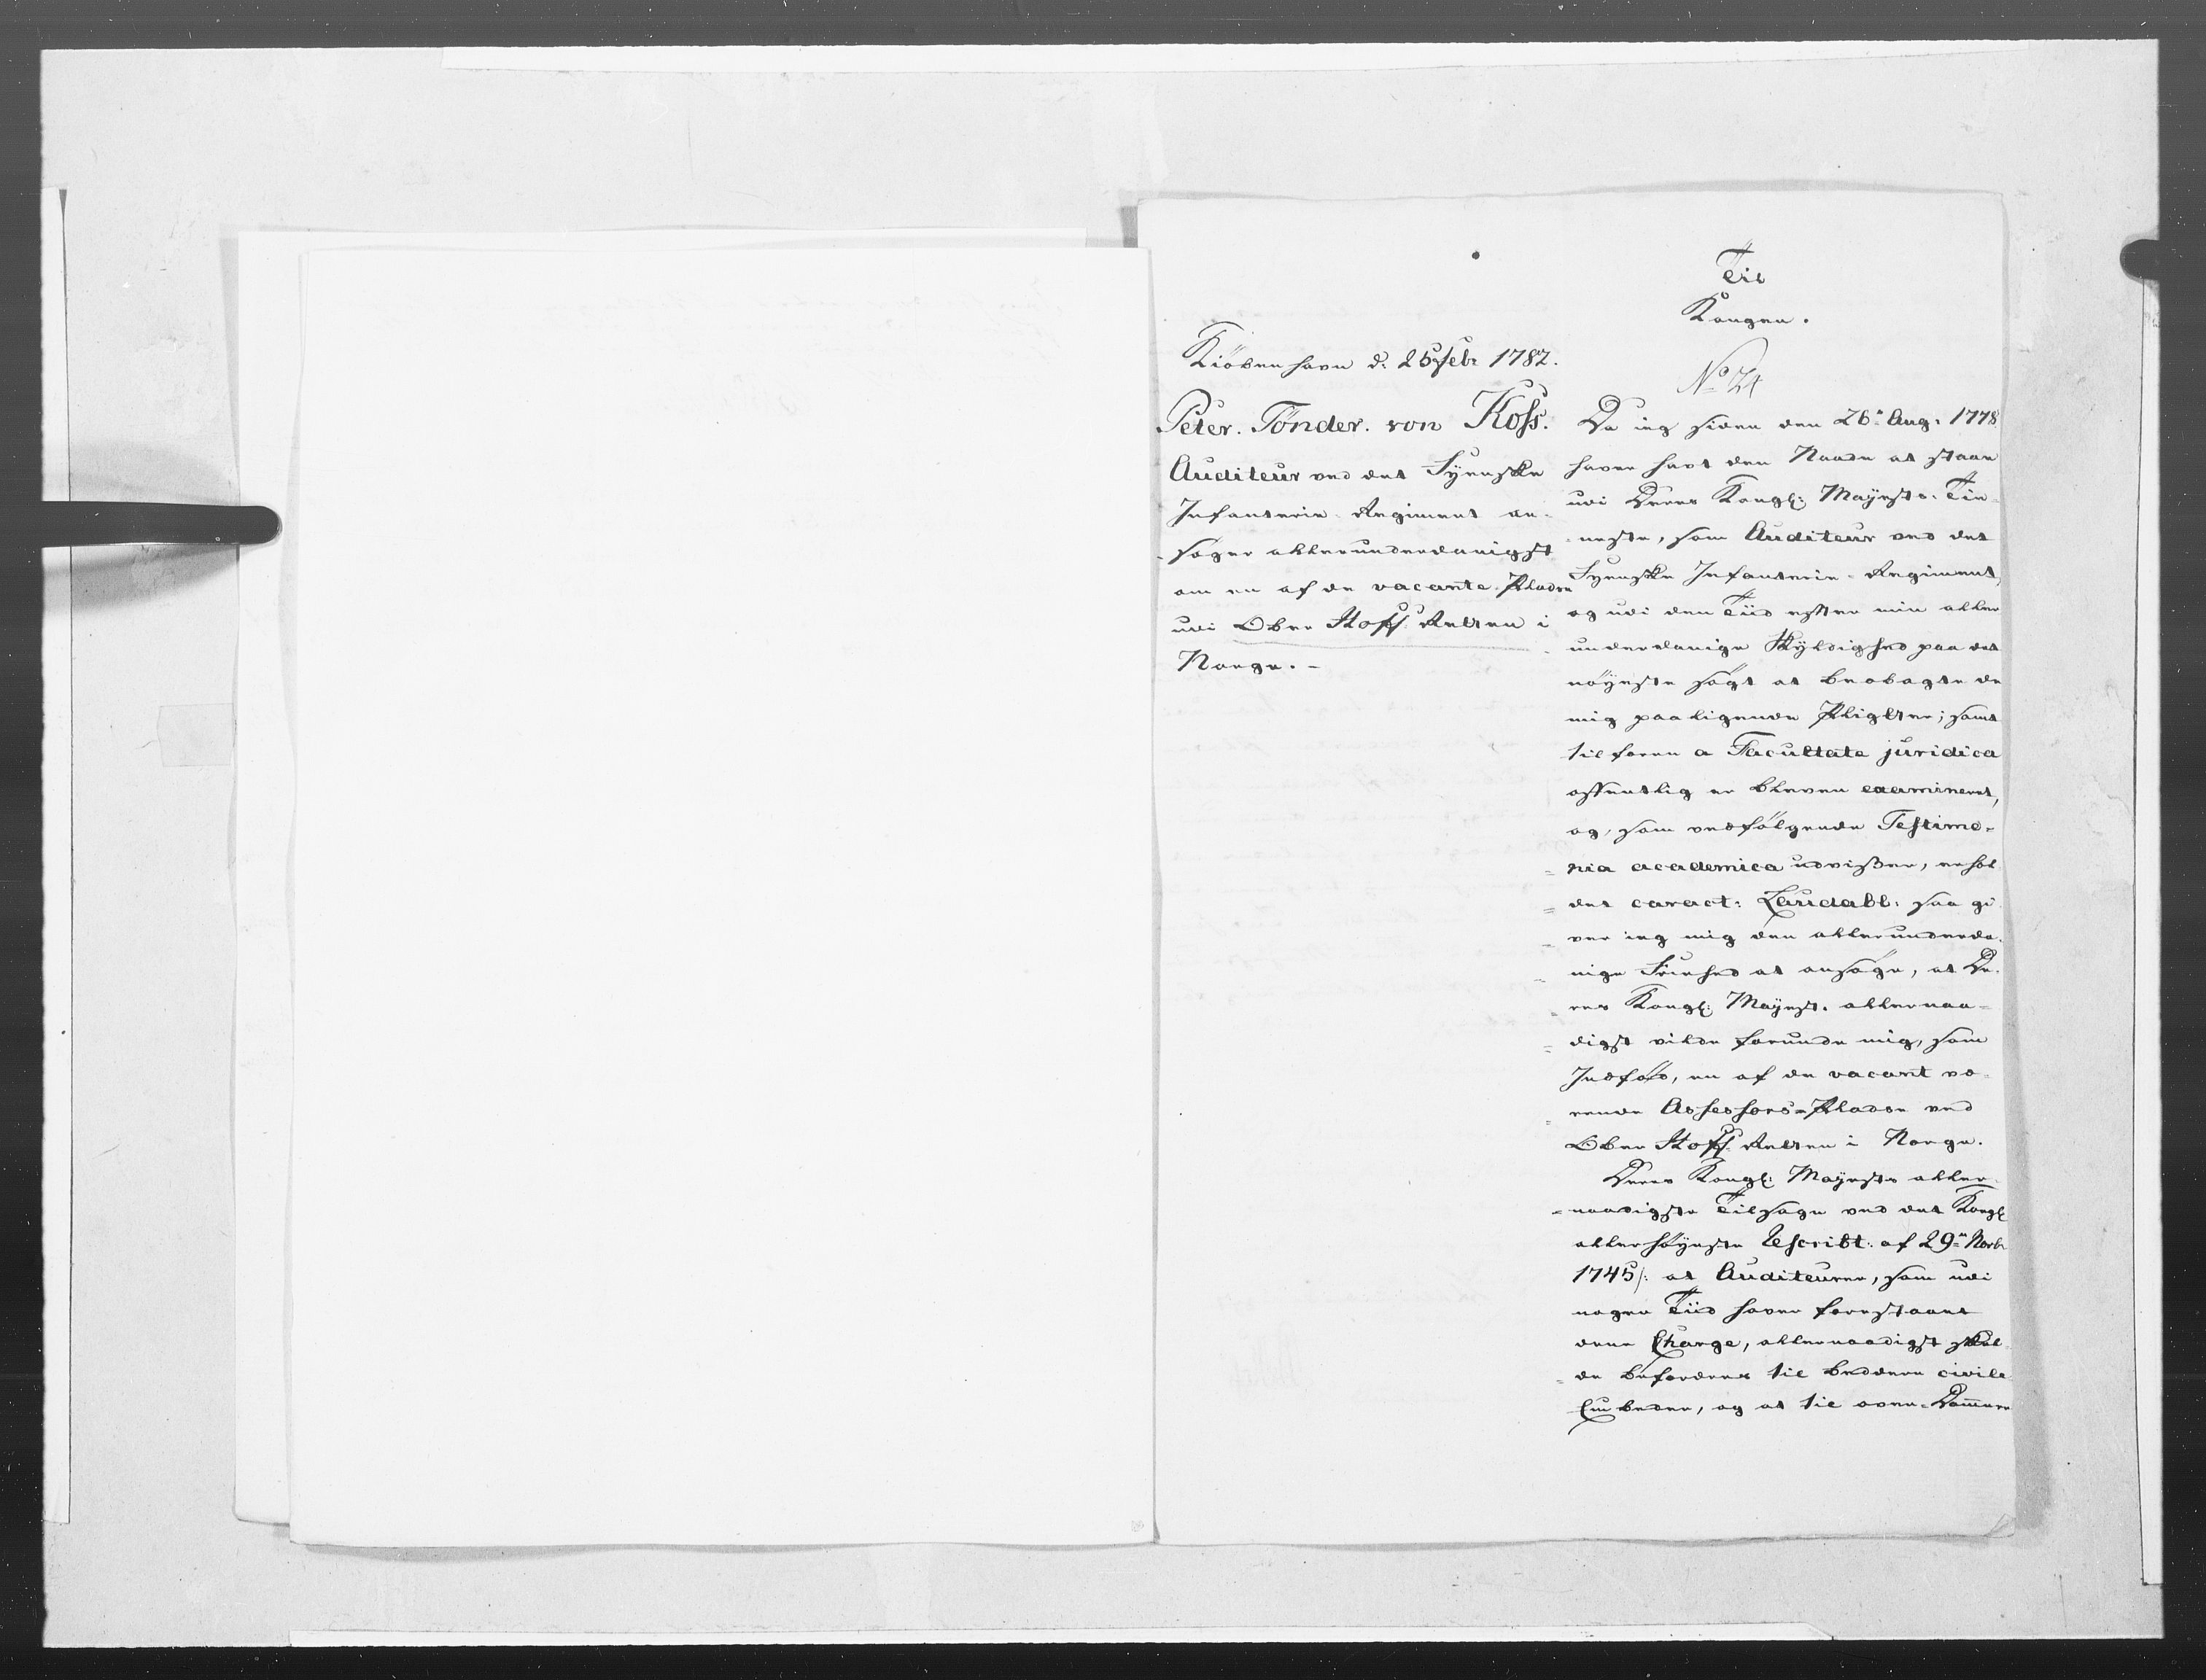 Til
Kongen.
Kiöbenhavn d: 25 Febr 1782.
Peter. Tönder. von Koss.
Auditeur ved det Fyenske
Infanterie-Regiment an-
söger allerunderdanigst
om en af de vacante Pladse
udi Ober Hoff Retten i
Norge. -
No 24
Da ieg siden den 26de Aug: 1778
haver havt den Naade at staae
udi Deres Kongl: Mayests. Tie-
neste, som Auditeur ved det
Fyenske Infanterie-Regiment,
og udi den Tiid efter min aller
underdanige Skyldighed paa det
nöyeste sögt at beobagte de
mig paaligende Pligter; samt
tilforn a Facultate juridica
offentlig er bleven examineret,
og, som vedfölgende Testimo-
nia academica udvißer, erhol-
det caract: Laudabl: saa gi-
ver ieg mig den allerunderda-
nige Friehed at ansöge, at De-
res Kongl: Mayest. allernaa-
digst vilde forunde mig, som
Indföd, en af de vacant væ-
rende Assessors-Pladse ved
Ober Hoff Retten i Norge.
Deres Kongl: Mayests aller-
naadigste Tilsagn ved det Kongl
allerhöyeste Rescribt: af 29de Novbr
1745/: at Auditeurer, som udi
nogen Tiid haver forestaaet
dene Charge, allernaadigst skul-
de befordres til bedere civile
Embeder, og at til over-Dommere